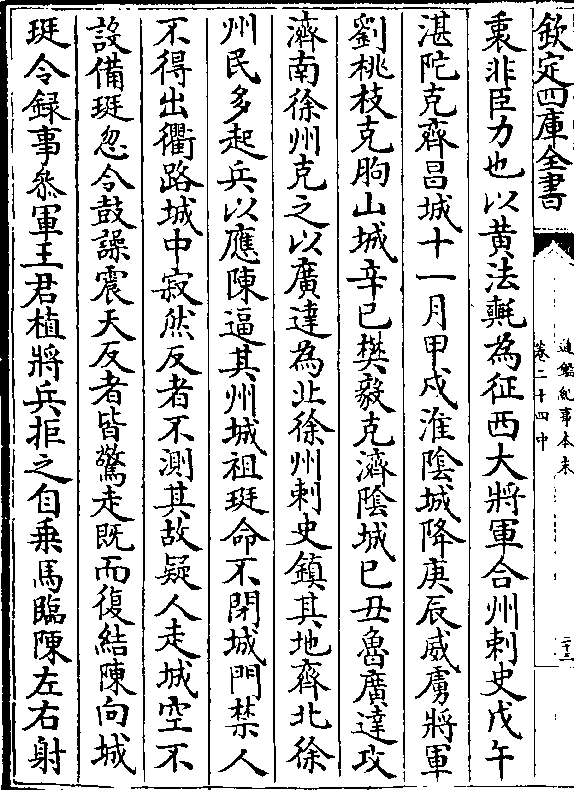 欽定四庫全書
通鑑紀事本末
卷二十四中
二十三
秉非臣力也以黄法𣰰為征西大將軍合州刺史戊午
湛陀克齊昌城十一月甲戌淮陰城降庚辰威虜將軍
劉桃枝克朐山城辛巳樊毅克濟陰城已丑魯廣達攻
濟南徐州克之以廣達為北徐州刺史鎮其地齊北徐
州民多起兵以應陳逼其州城祖珽命不閉城門禁人
不得出衢路城中寂然反者不測其故疑人走城空不
設備珽忽令鼓譟震天反者皆驚走既而復結陳向城
珽令録事叅軍王君植將兵拒之自乗馬臨陳左右射